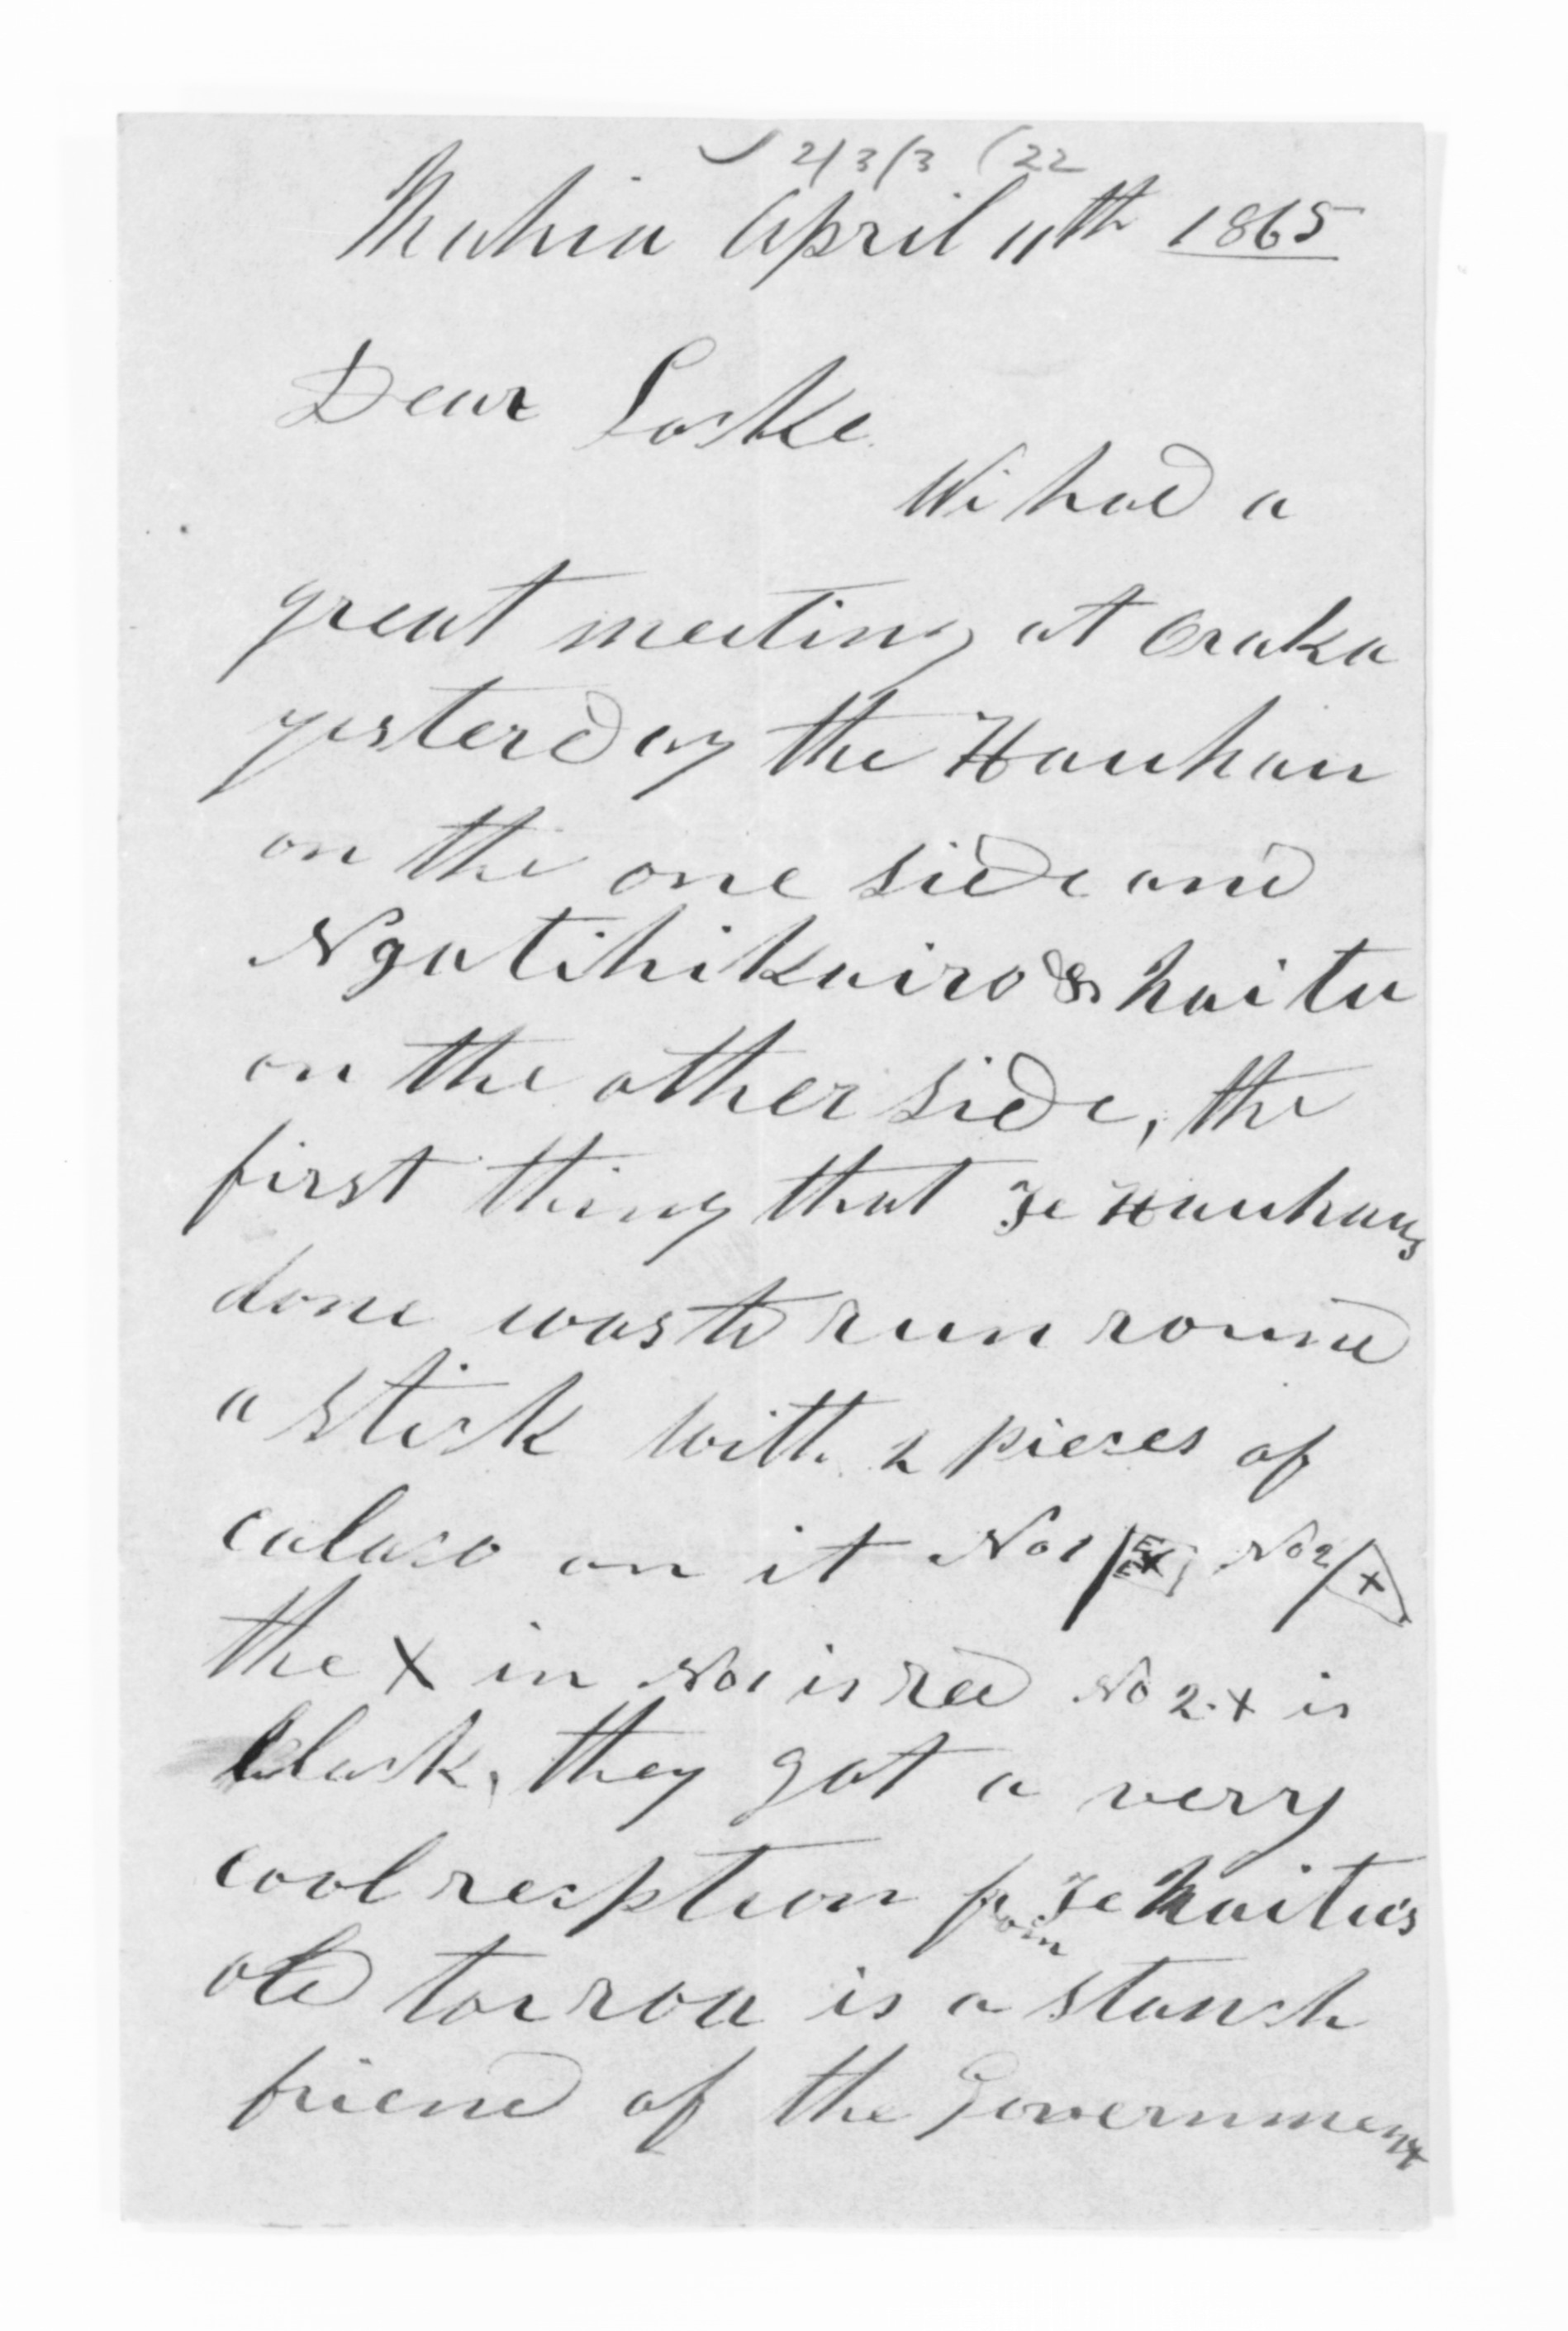 2/3/3 (22
Mahia April 11th 1865
Dear Locke
We had a
great meeting at Oraka
yesterday the Hauhau
on the one side and
Ngatihikairo & haitu
on the other side, the
first thing that Te Hauhaus
done was to run round
a stick with 2 pieces of
calaco on it No1 No2 X
the X in No1 is red No 2. X is
black, they got a very
cool reception from Te haitus
old tarroa is a stanch
friend of the Government